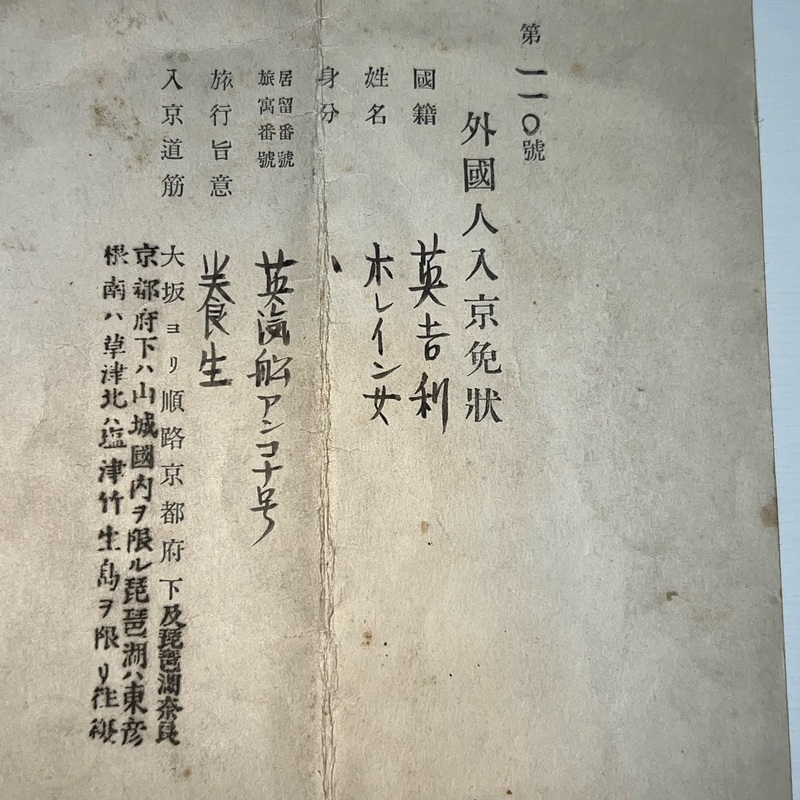 第一一〇號
外國人入京免狀
國籍 英吉利
姓名 ホレイン女
身分 、
居留番號
旅寓番號 英滊船アンコナ号
旅行旨意 養生
入京道筋 大坂ヨリ順路京都府下及琵琶湖奈良
京都府下ハ山城國内ヲ限ル琵琶湖ハ東彦
根南ハ草津北ハ塩津竹生島ヲ限リ往復